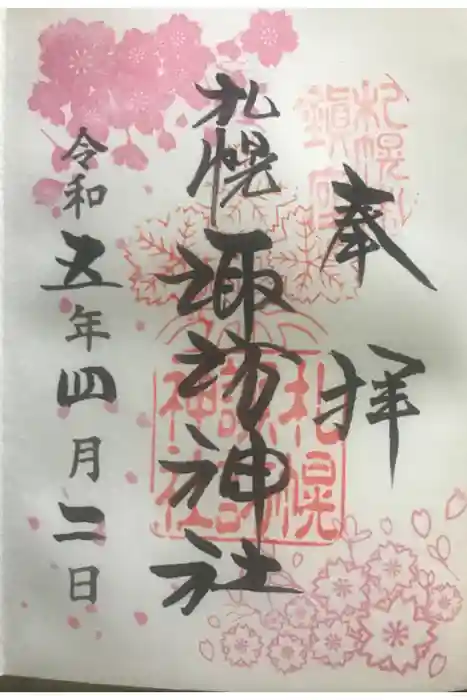 奉拝
札幌鎮座
札幌諏訪神社
札幌諏訪神社
令和五年四月二日